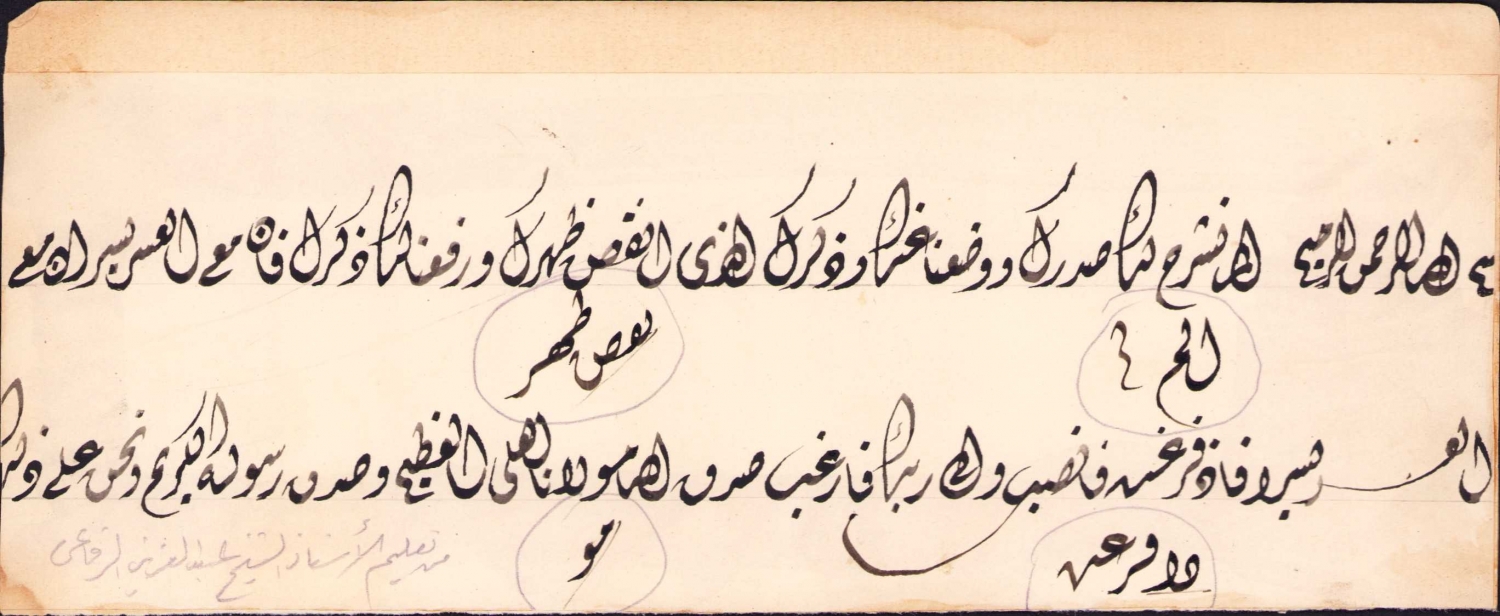 بسم الله الرحمن الرحيم الم نشرح لك صدرك ووضعنا عنك وذكرك الذي انقض ظهرك ورفعنا لك ذكرك فان مع العسر يسرا ان مع
الم
نقض ظهر
العسر يسرا فاذ فرغت فانصب والى ربك فارغب صدق الله مولانا العلي العظيم وصدق رسوله الكريم ونحن على ذلك
ذا فرغت
مو
من تعليم الأستاذ الشيخ عبد العزيز الرفاعى